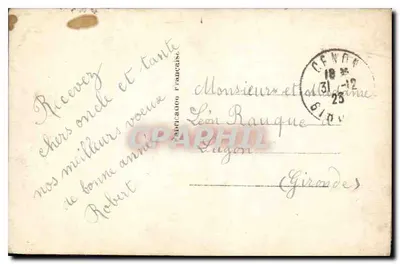 Recevez
chers oncle et tante
nos meilleurs voeux
de bonne année
Robert
Fabrication Française
Monsieur et Madame
Léon Rauque
Lugon
(Gironde)
CENON
18 H
31-12
23
GIR
CPAPHIL